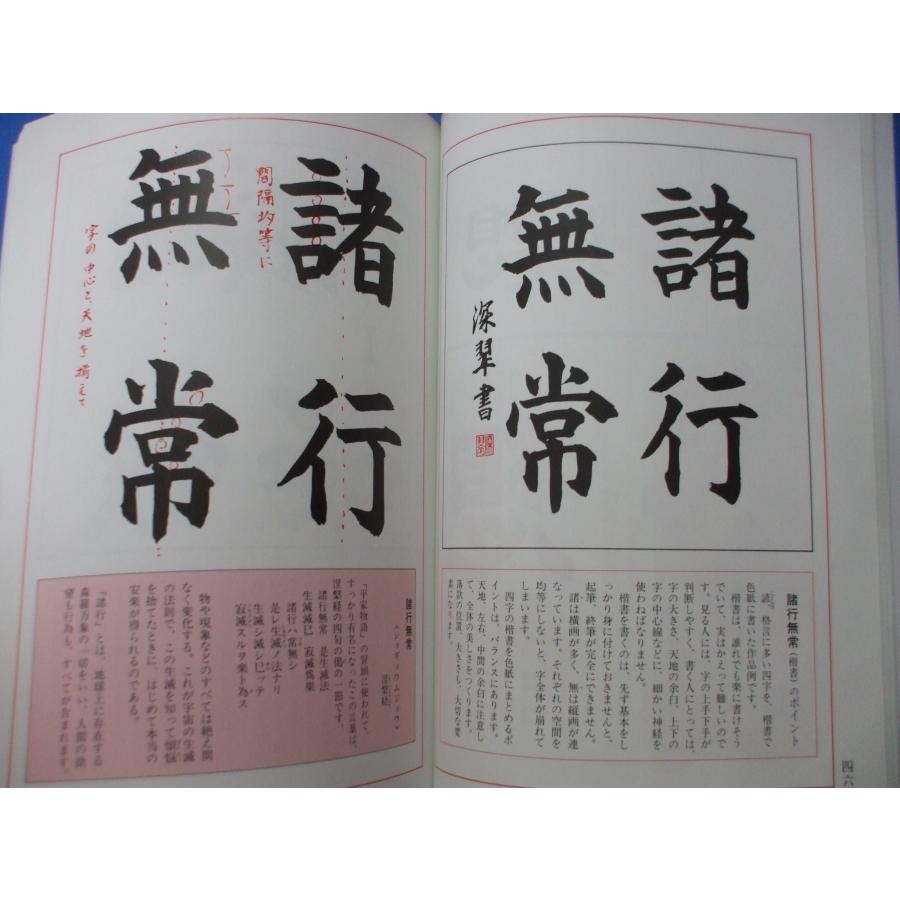 諸行
無常
深翠書
諸行無常(楷書)のポイント
読。格言に多い四字を、楷書で
色紙に書いた作品例です。
楷書は、誰れでも楽に書けそう
でいて、実はかえって難しいので
す。見る人には、字の上手下手が
判断しやすく、書く人にとっては、
字の大きさ、天地の余白、上下の
字の中心線などに、細かい神経を
使わねばなりません。
楷書を書くのは、先ず基本をし
っかり身に付けておきませんと、
起筆、終筆が完全にできません。
諸は横画が多く、無は縦画が連
なっています。それぞれの空間を
均等にしないと、字全体が崩れて
しまいます。
四字の楷書を色紙にまとめるポ
イントは、バランスにあります。
天地、左右、中間の余白に注意し
て、全体の美しさをつくります。
落款の位置、大きさも、大切な要
素になります。
四六
諸行
間隔均等に
無常
字の中心と、天地を揃えて
諸行無常
(ショギョウムジョウ)
涅槃経
「平家物語」の冒頭に使われて、
すっかり有名になったこの言葉は、
涅槃経の四句の偈の一節です。
諸行無常 是生滅法
生滅滅已 寂滅為楽
諸行ハ常無シ
是レ生滅ノ法ナリ
生滅シ滅シ已ッテ
寂滅スルヲ楽ト為ス
物や現象などのすべては絶え間
なく変化する。これが宇宙の生滅
の法則で、この生滅を知って煩悩
を捨てたときに、はじめて本当の
安楽が得られるのである。
「諸行」とは、地球上に存在する
森羅万象の一切をいい、人間の欲
望も行為も、すべてが含まれます。